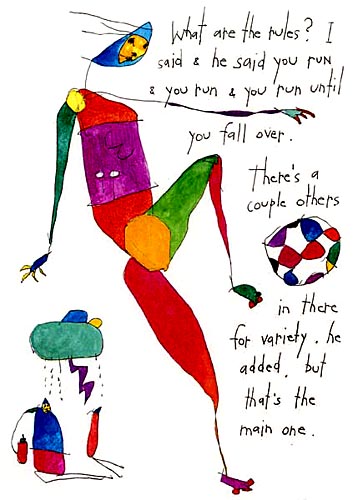 What are the rules? I
said & he said you run
& you run & you run until
you fall over.
There's a
couple others
in there
for variety, he
added, but
that's the
main one.